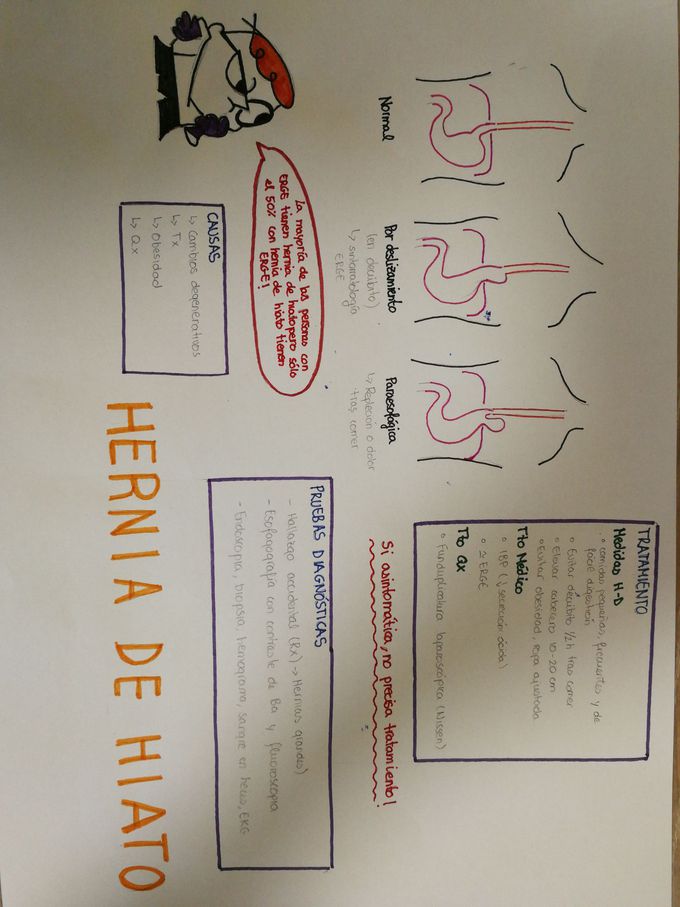 HERNIA DE HIATO
CAUSAS
↳ Cambios degenerativos
↳ Tx
↳ Obesidad
↳ Qx
PRUEBAS DIAGNÓSTICAS
- Hallazgo accidental (RX) → Hernias grandes)
- Esofagografía con contraste de Ba y fluoroscopia
- Endoscopia, biopsia, hemograma, sangre en heces, EKG
La mayoría de las personas con
ERGE tienen hernia de hiato pero sólo
el 50% con hernia de hiato tienen
ERGE!
Si asintomática, no precisa tratamiento!
Normal
Por deslizamiento
(en decúbito)
↳ sintomatología
ERGE
Paraesofágica
↳ Repleción o dolor
tras comer
TRATAMIENTO
Medidas H-D
° comidas pequeñas, frecuentes y de
fácil digestión
° Evitar decúbito 1/2 h tras comer
° Elevar cabecero 10-20 cm
° Evitar obesidad, ropa ajustada
Tto Médico
° IBP (↓ secreción ácida)
° ≃ ERGE
Tto Qx
° Funduplicatura laparoscópica (Nissen)